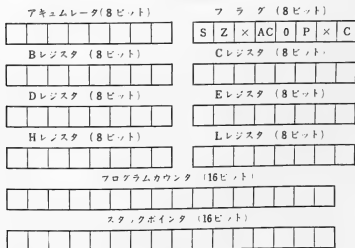 アキュムレータ(8ビット)
フラグ(8ビット)
S Z × AC 0 P × C
Bレジスタ (8ビット)
Cレジスタ (8ビット)
Dレジスタ (8ビット)
Eレジスタ (8ビット)
Hレジスタ (8ビット)
Lレジスタ (8ビット)
プログラムカウンタ (16ビット)
スタックポインタ (16ビット)